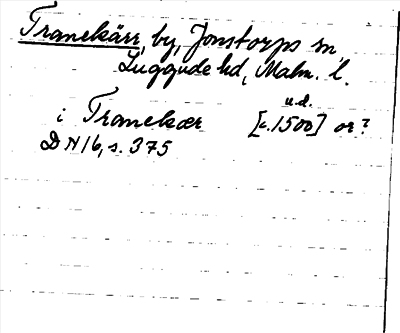 Tranekärr, by, Jonstorps sn
Luggude hd, Malm. l.
u.d.
i Tranekær [c.1500] or?
DN 16, s. 375